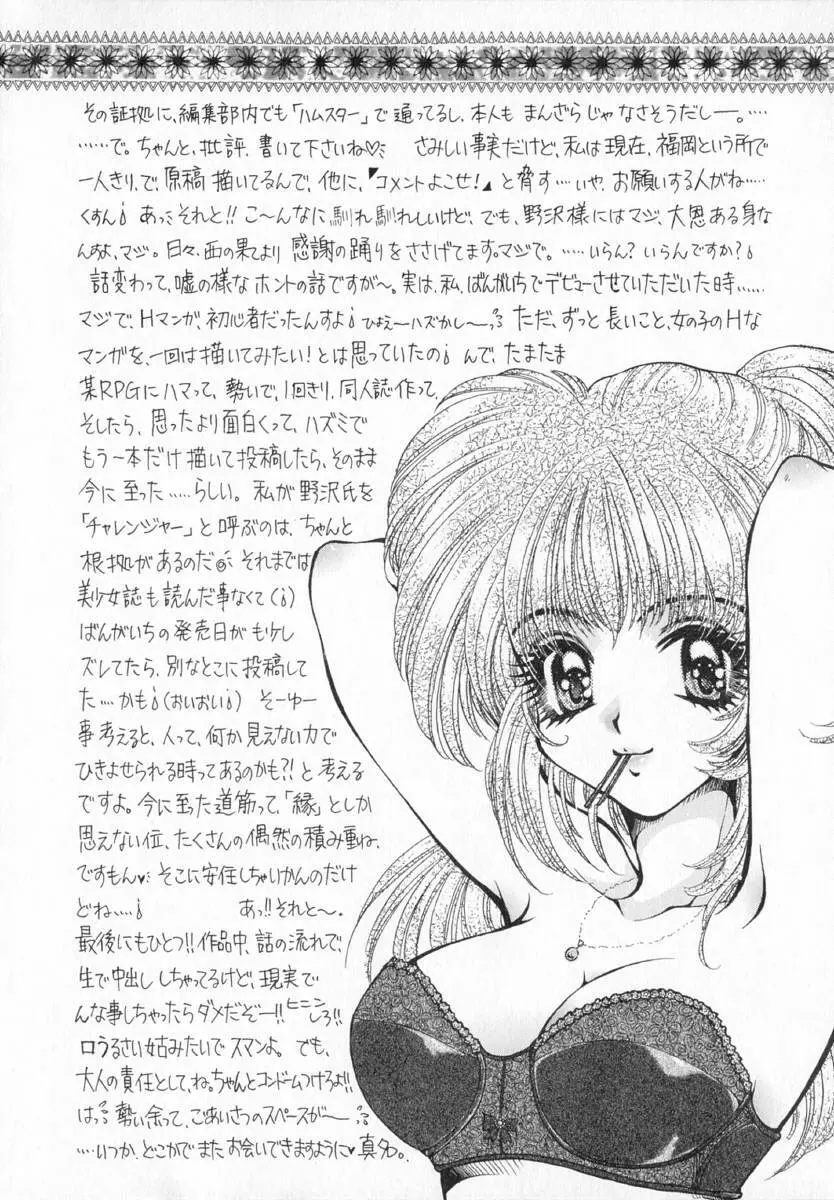 その証拠に、編集部内でも「ハムスター」で通ってるし、本人もまんざらじゃなさそうだしー。……
……で。ちゃんと、批評、書いて下さいね♡ さみしい事実だけど、私は現在、福岡という所で
一人きり、で、原稿描いてるんで、他に、「コメントよこせ!」と脅す……いや、お願いする人がね……
くすん あっ それと!! こ〜んなに馴れ馴れしいけど、でも、野沢様にはマジ、大恩ある身な
んすよ、マジ。日々、西の果てより感謝の踊りをささげてます。マジで。……いらん?いらんですか?
話変わって、嘘の様なホントの話ですが〜。実は、私、ばんがいちでデビューさせていただいた時……
マジで、Hマンガ、初心者だったんすよ ひょえーハズかしー ただ、ずっと長いこと、女の子のHな
マンガを、一回は描いてみたい!とは思っていたの んで、たまたま
某RPGにハマって、勢いで、1回きり、同人誌作って、
そしたら、思ったより面白くって、ハズミで
もう一本だけ描いて投稿したら、そのまま
今に至った……らしい。私が野沢氏を
「チャレンジャー」と呼ぶのは、ちゃんと
根拠があるのだ それまでは
美少女誌も読んだ事なくて
ばんがいちの発売日がも少し
ズレてたら、別なとこに投稿して
た……かも(おいおい) そーゆー
事考えると、人って、何か見えない力で
ひきよせられる時ってあるのかも?!と考える
ですよ。今に至った道筋って、「縁」としか
思えない位、たくさんの偶然の積み重ね、
ですもん♥ そこに安住しちゃいかんのだけ
どね…… あっ!!それと〜。
最後にもひとつ!!作品中、話の流れで、
生で中出ししちゃってるけど、現実で
んな事しちゃったらダメだぞー!! ヒニンしろ!!
口うるさい姑みたいでスマンよ。でも、
大人の責任として、ね。ちゃんとコンドームつけろよ!!
はっ 勢い余って、ごあいさつのスペースが〜
……いつか、どこかでまたお会いできますように♥